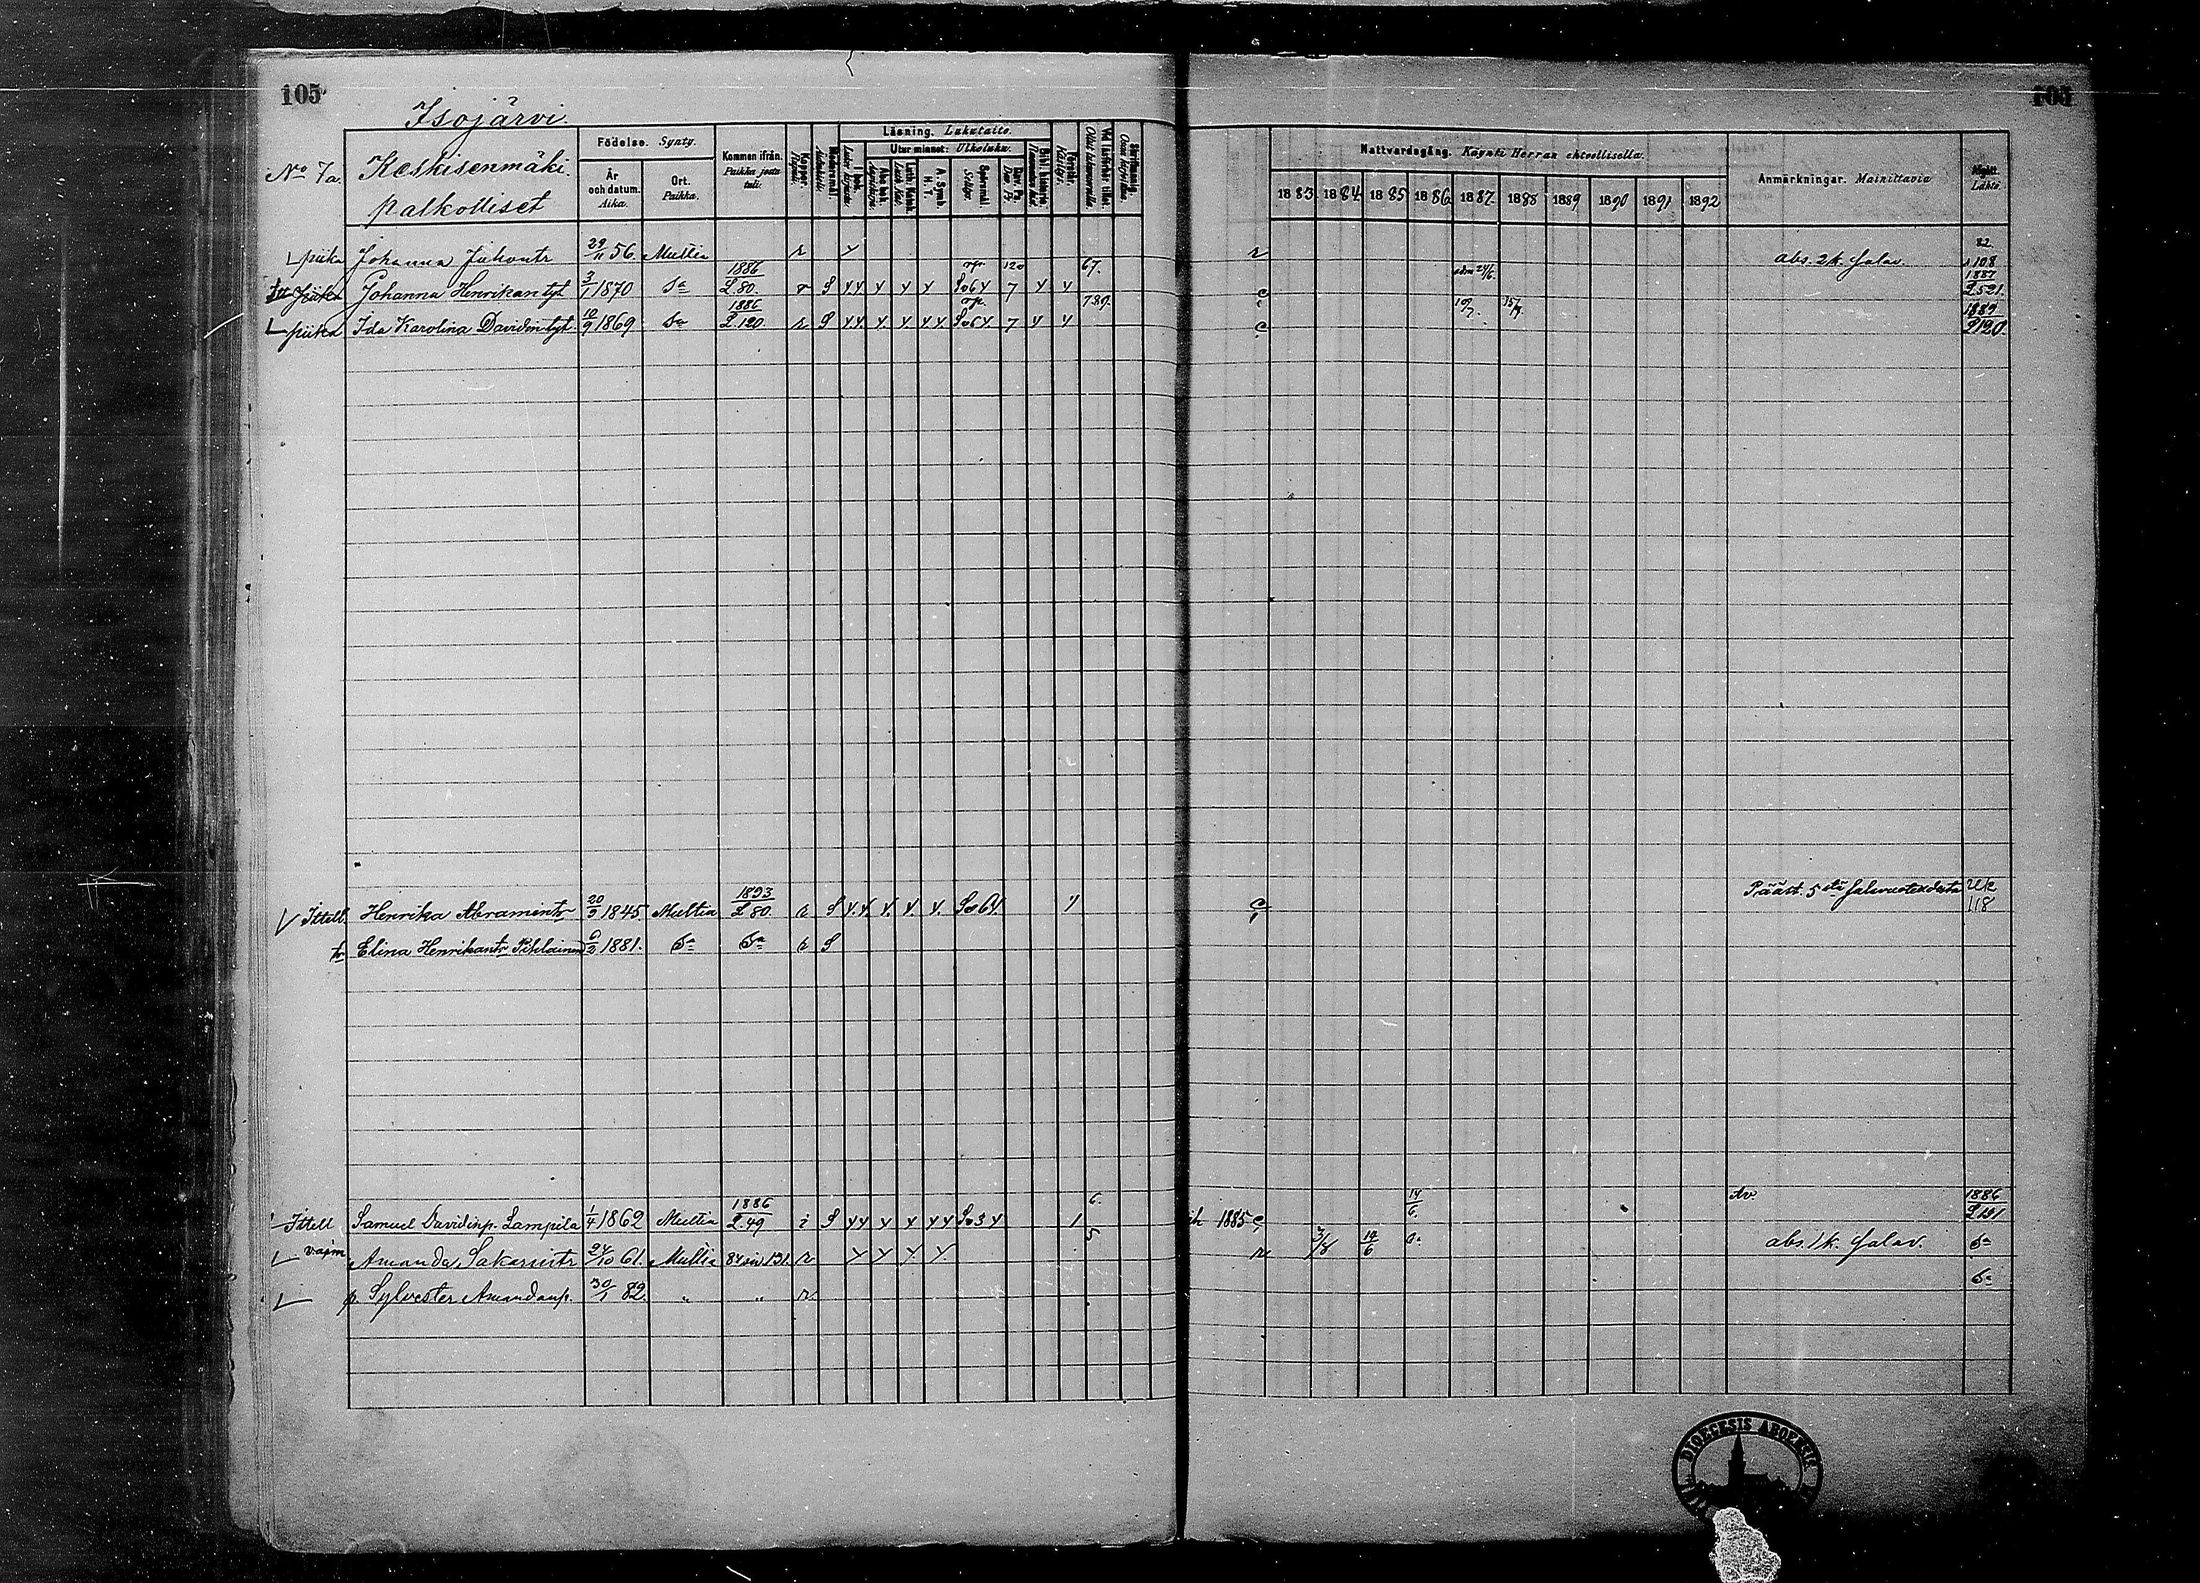 105
105
Isojärvi
No 7a. Keskisenmäki.
palkolliset
Födelse. Synty.
År och datum. Aika.
Ort. Paikka.
Kommen ifrån. Paikka josta tuli.
Koppor. Rupuli.
Läsning. Lukutaito.
Utur minnet: Ulkoluku.
Nattvardsgång. Käynti Herran ehtoollisella.
1883 1884 1885 1886 1887 1888 1889 1890 1891 1892
Anmärkningar. Mainittavia
Flytt. Lähtö.
piika Johanna Juhontr 29/11 56. Multia r y r abs. 2 k. salav. 82 108
piika Johanna Henrikantyt 3/7 1870 Sa 1886 L 80. r S y y y y y 7 y y 67. 1887 L 521.
piika Ida Karolina Davidintyt 10/9 1869 Sa 1886 L 120. r S y y y y y y 7 y y 789. 1889 L 120.
Ittell. Henrika Abramintr 20/9 1845 Multia 1893 L 80. r S y. y y. y. y. Pääst. 118
tr. Elina Henrikantr Pihlainen 6/2 1881. Sa Sa r S
Ittell Samuel Davidinp. Lampila 1/4 1862 Multia 1886 L 49 S y y y y y y 6. 1885 14/6. 1886 L 191
vaim Amanda Sakarintr 24/10 61. Multia 84 siv. 131. r y y y y 5 r 3/8 19/6 abs. 1 k. salav. Sa
p. Sylvester Amandanp. 30/1 82. " " r. Sa
DIOECESIS ABOENSIS